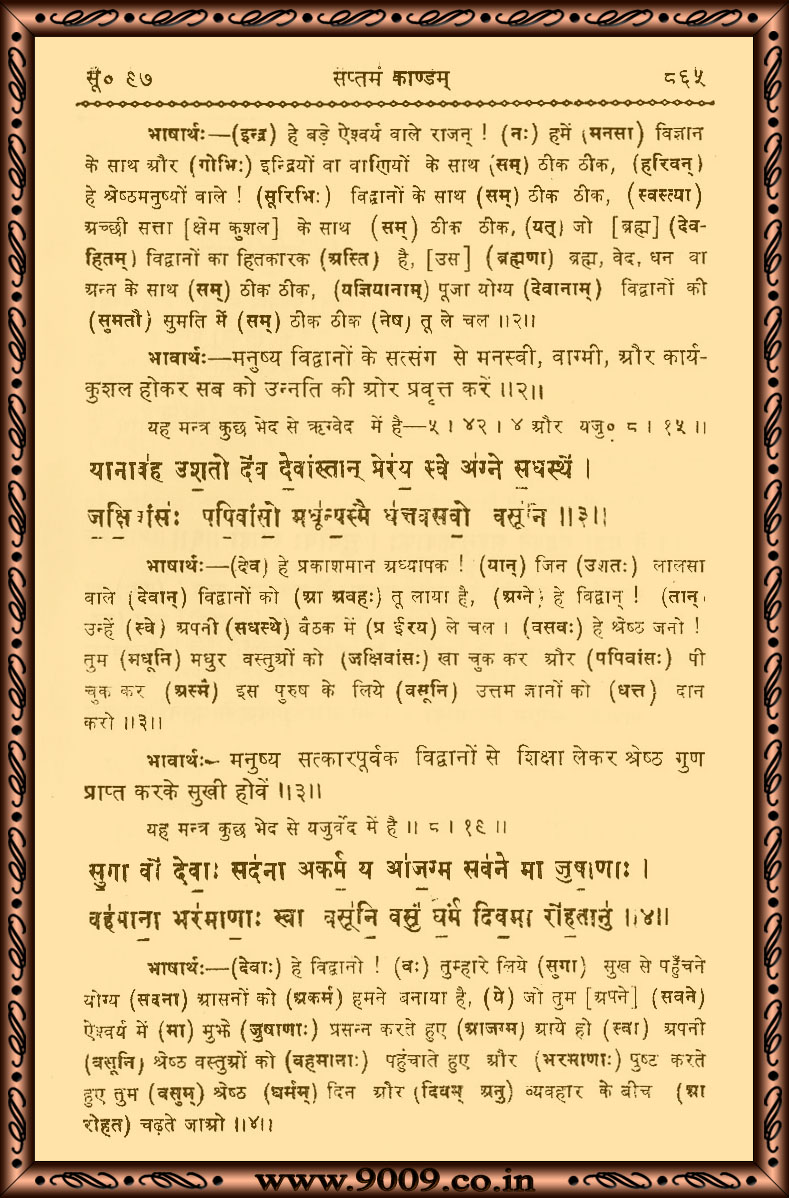 सू० ९७ सप्तमं काण्डम् ८६५
भाषार्थः—(इन्द्र) हे बड़े ऐश्वर्य वाले राजन् ! (नः) हमें (मनसा) विज्ञान
के साथ और (गोभिः) इन्द्रियों वा वाणियों के साथ (सम्) ठीक ठीक, (हरिवन्)
हे श्रेष्ठमनुष्यों वाले ! (सूरिभिः) विद्वानों के साथ (सम्) ठीक ठीक, (स्वस्त्या)
अच्छी सत्ता [क्षेम कुशल] के साथ (सम्) ठीक ठीक, (यत्) जो [ब्रह्म] (देव-
हितम्) विद्वानों का हितकारक (अस्ति) है, [उस] (ब्रह्मणा) ब्रह्म, वेद, धन वा
अन्न के साथ (सम्) ठीक ठीक, (यज्ञियानाम्) पूजा योग्य (देवानाम्) विद्वानों की
(सुमतौ) सुमति में (सम्) ठीक ठीक (नेष) तू ले चल ॥२॥
भावार्थः—मनुष्य विद्वानों के सत्संग से मनस्वी, वाग्मी, और कार्य-
कुशल होकर सब को उन्नति की ओर प्रवृत्त करें ॥२॥
यह मन्त्र कुछ भेद से ऋग्वेद में है—५ । ४२ । ४ और यजु० ८ । १५ ॥
यानाव॑ह उश॒तो दे॑व दे॒वांस्तान् प्रेर॑य॒ स्वे अ॑ग्ने स॒धस्थे॑ ।
ज॒क्षि॒वांसः॑ पपि॒वांसो॒ मधू॑न्य॒स्मै ध॑त्तवसवो॒ वसू॑नि ॥३॥
भाषार्थः—(देव) हे प्रकाशमान अध्यापक ! (यान्) जिन (उशतः) लालसा
वाले (देवान्) विद्वानों को (आ अवहः) तू लाया है, (अग्ने) हे विद्वान् ! (तान्)
उन्हें (स्वे) अपनी (सधस्थे) बैठक में (प्र ईरय) ले चल । (वसवः) हे श्रेष्ठ जनो !
तुम (मधूनि) मधुर वस्तुओं को (जक्षिवांसः) खा चुक कर और (पपिवांसः) पी
चुक कर (अस्मै) इस पुरुष के लिये (वसूनि) उत्तम ज्ञानों को (धत्त) दान
करो ॥३॥
भावार्थः— मनुष्य सत्कारपूर्वक विद्वानों से शिक्षा लेकर श्रेष्ठ गुण
प्राप्त करके सुखी होवें ॥३॥
यह मन्त्र कुछ भेद से यजुर्वेद में है ॥ ८ । १९ ॥
सु॒गा वो॑ देवाः॒ सद॑ना अकर्म॒ य आ॑ज॒ग्म सव॑ने मा जुषा॒णाः ।
वह॑माना॒ भर॑माणाः॒ स्वा वसू॑नि॒ वसुं॑ घ॒र्मं दिव॒मा रो॑ह॒तानु॑ ॥४॥
भाषार्थः—(देवाः) हे विद्वानो ! (वः) तुम्हारे लिये (सुगा) सुख से पहुँचने
योग्य (सदना) आसनों को (अकर्म) हमने बनाया है, (ये) जो तुम [अपने] (सवने)
ऐश्वर्य में (मा) मुझे (जुषाणाः) प्रसन्न करते हुए (आजग्म) आये हो (स्वा) अपनी
(वसूनि) श्रेष्ठ वस्तुओं को (वहमानाः) पहुंचाते हुए और (भरमाणाः) पुष्ट करते
हुए तुम (वसुम्) श्रेष्ठ (घर्मम्) दिन और (दिवम् अनु) व्यवहार के बीच (आ
रोहत) चढ़ते जाओ ॥४॥
www.9009.co.in